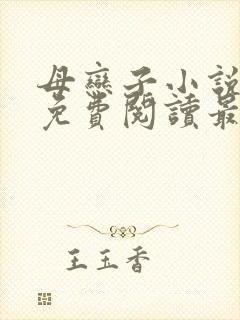 母戀子小說
免費閱讀最
王玉香